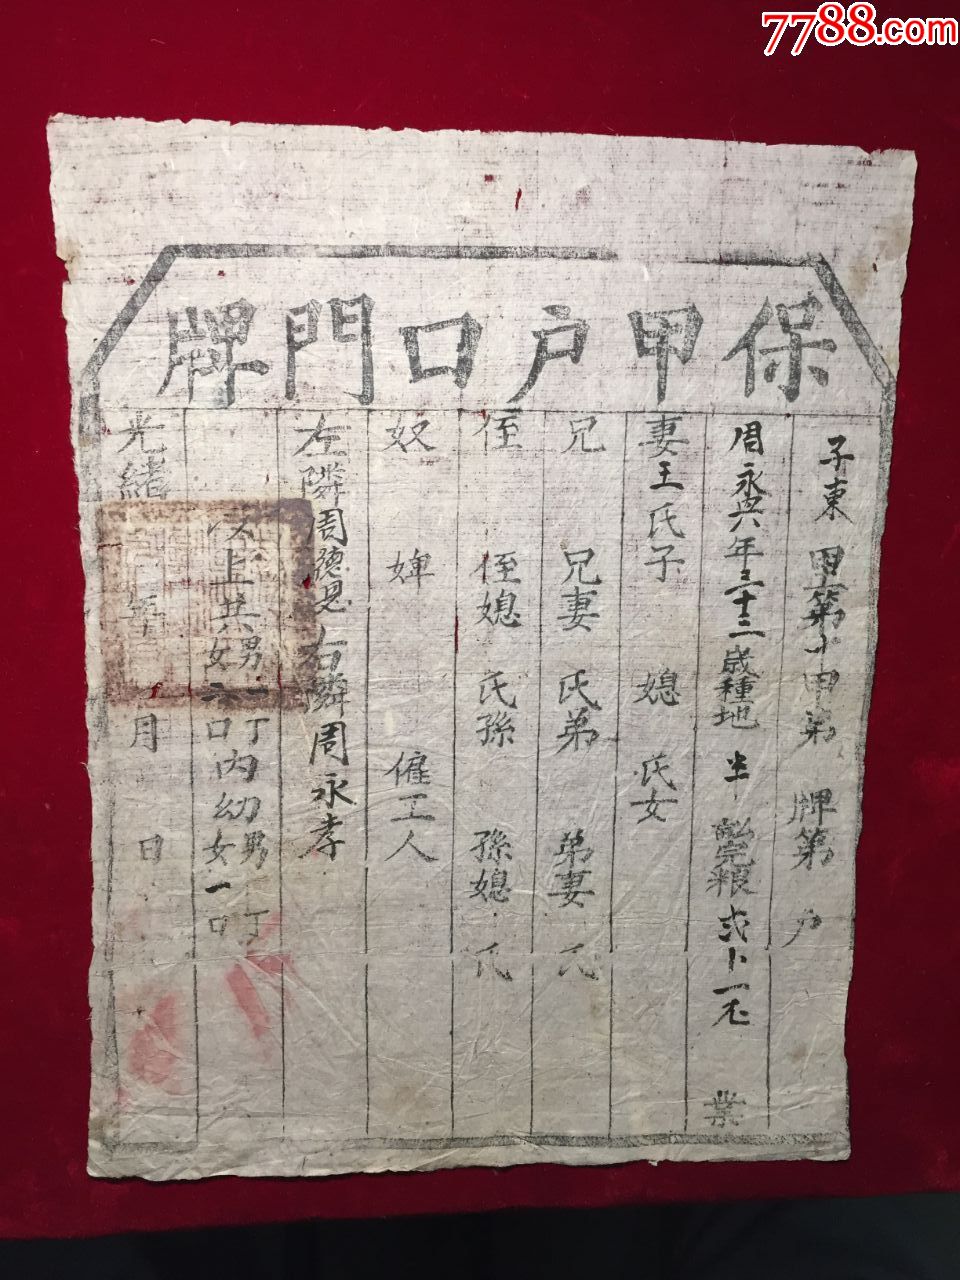 7788.com
保甲户口門牌
子東 甲第十甲第 牌第 户
周永興年三十二歲種地 坐 完粮 業
妻王氏子 媳 氏女
兄 兄妻 氏弟 弟妻 氏
侄 侄媳 氏孫 孫媳 氏
奴 婢 僱工人
左隣周德恩右隣周永孝
以上共男一丁女六口内幼男 丁女一口
光緒 年 月 日